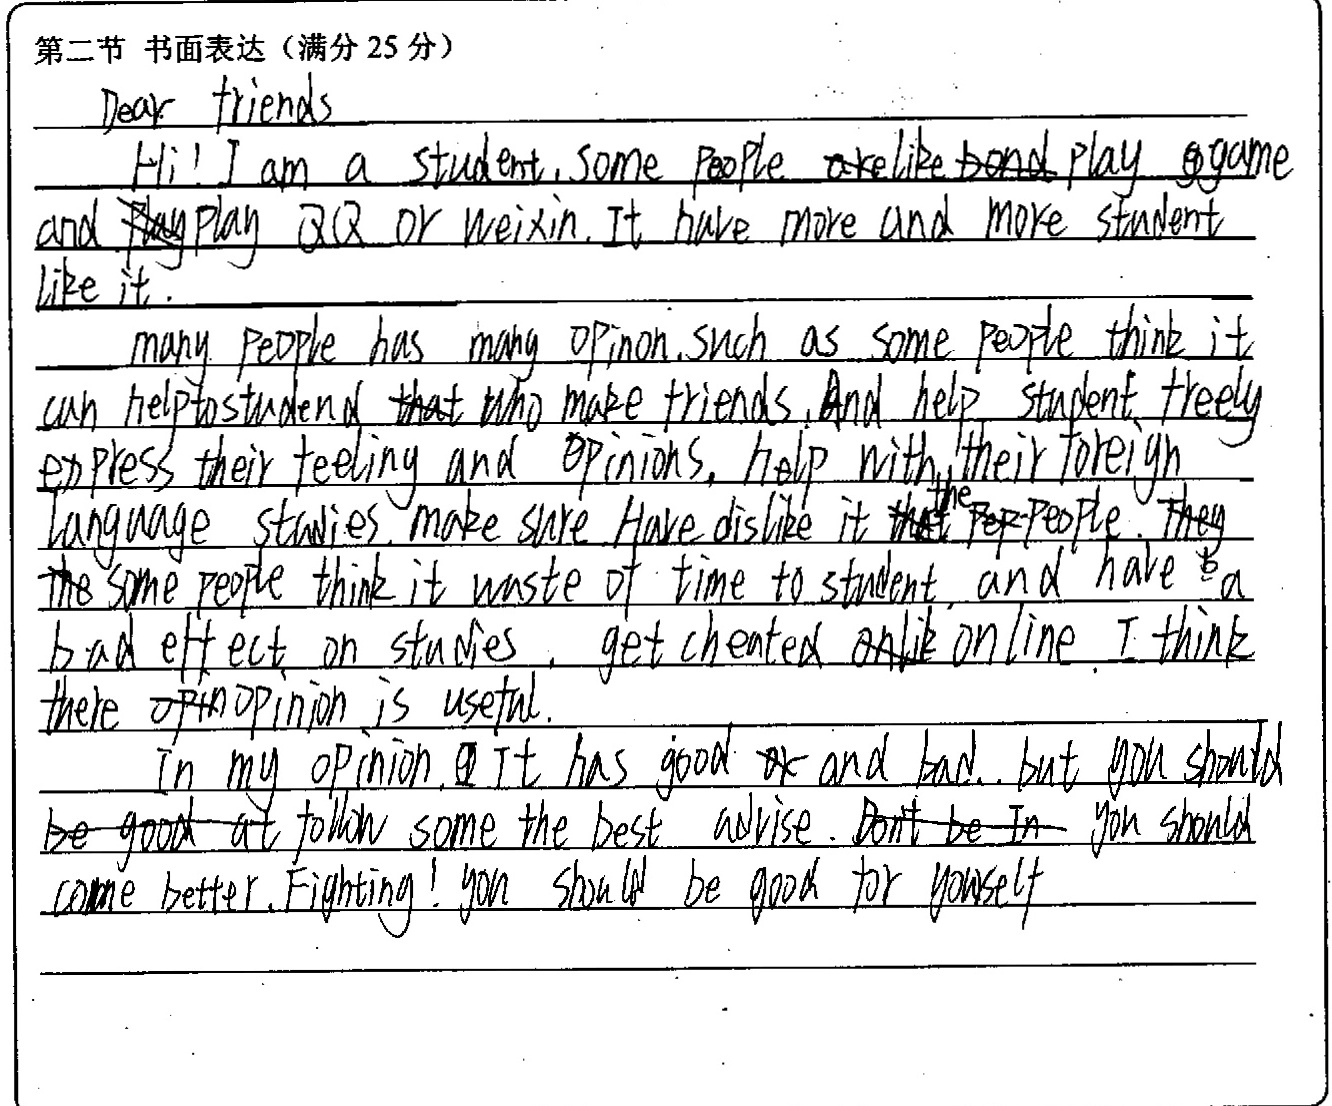 第二节 书面表达（满分 25 分）
Dear friends
Hi! I am a student. Some people like play game
and play QQ or weixin. It have more and more student
like it.
many people has many opinon. such as some people think it
can help to studend who make friends. And help student freely
express their feeling and opinions, help with their foreign
language studies. make sure. Have dislike it the people.
some people think it waste of time to student. and have a
bad effect on studies, get cheated online. I think
there opinion is useful.
In my opinion. It has good and bad.. but you should
follow some the best advise. you should
come better. Fighting! you should be good for yourself